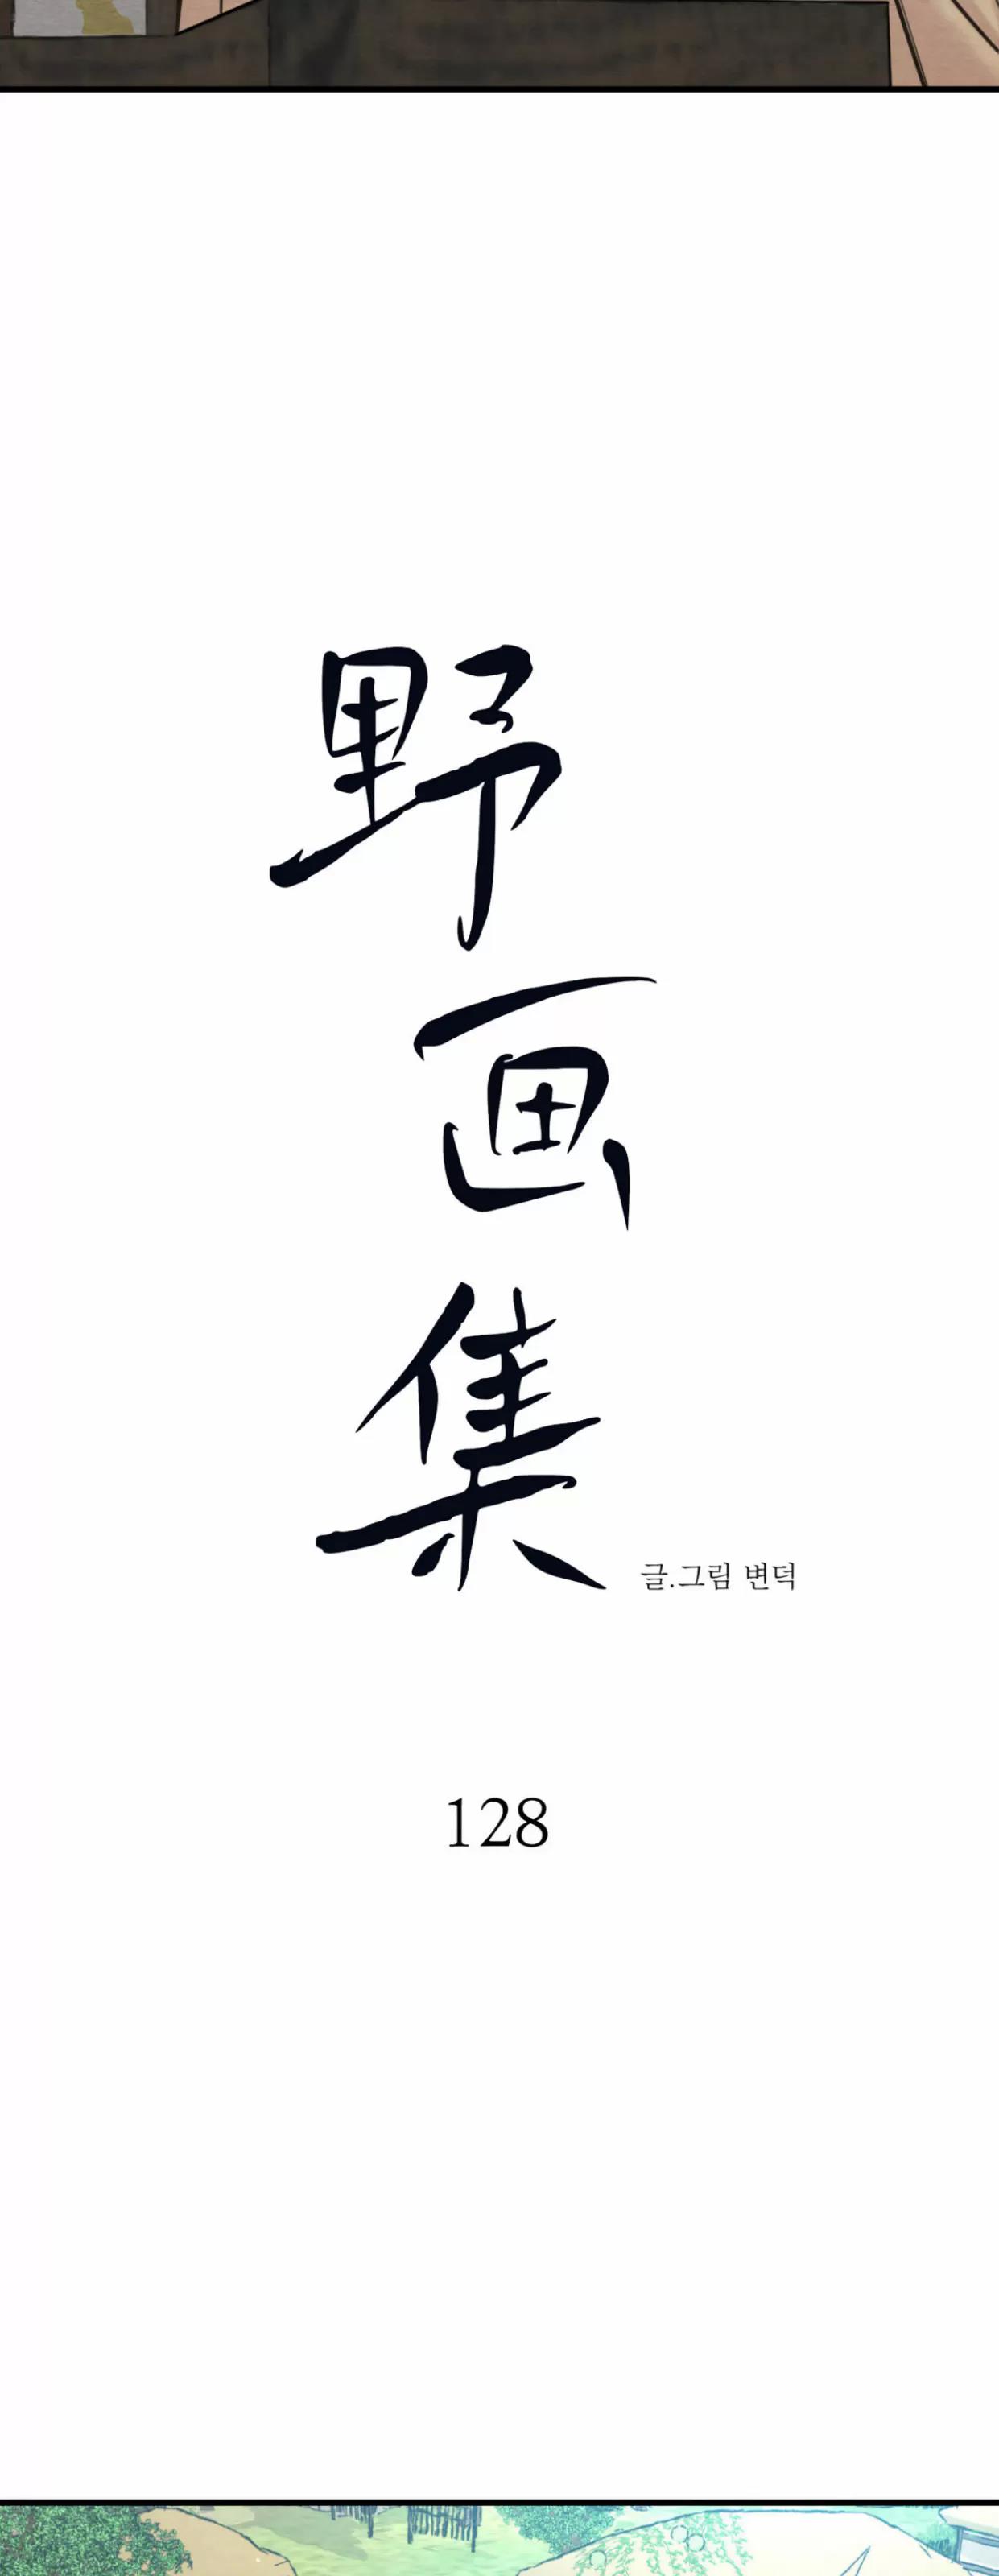 野
画
集
글.그림 변덕
128